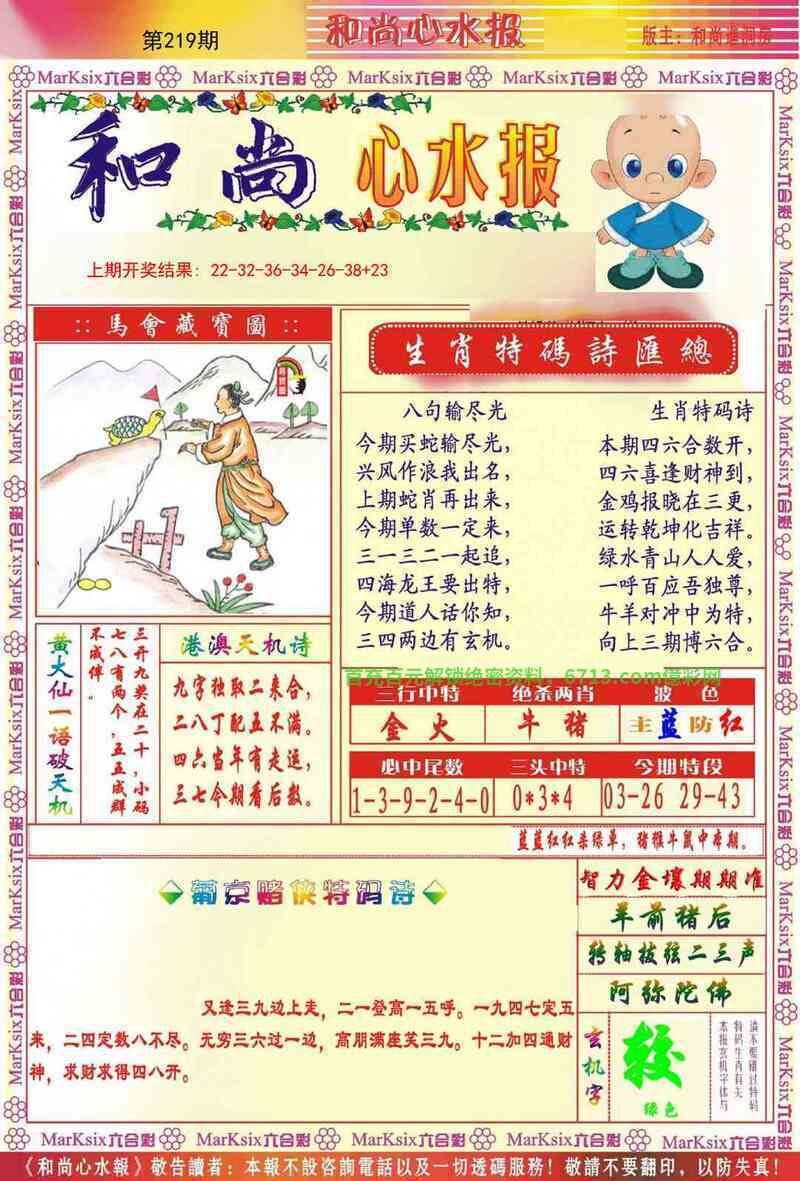 第219期
和尚心水报
版主：和尚进洞房
MarKsix六合彩 MarKsix六合彩 MarKsix六合彩 MarKsix六合彩 MarKsix六合彩
和尚心水报
上期开奖结果：22-32-36-34-26-38+23
::馬會藏寶圖::
生肖特碼詩匯總
八句输尽光
今期买蛇输尽光，
兴风作浪我出名，
上期蛇肖再出来，
今期单数一定来，
三一三二一起追，
四海龙王要出特，
今期道人话你知，
三四两边有玄机。
生肖特码诗
本期四六合数开，
四六喜逢财神到，
金鸡报晓在三更，
运转乾坤化吉祥。
绿水青山人人爱，
一呼百应吾独尊，
牛羊对冲中为特，
向上三期博六合。
黄大仙一语破天机
三开九类在二十，小码
七八有两个，五五成群
不成伴。
港澳天机诗
九字独取二来合，
二八丁配五不满。
四六当年有走运，
三七今期看后数。
首充百元解锁绝密资料，6713.com億彩网
三行中特 绝杀两肖 波 色
金火 牛猪 主蓝防红
必中尾数 三头中特 今期特段
1-3-9-2-4-0 0*3*4 03-26 29-43
蓝蓝红红杀绿单，猪猴牛鼠中本期。
葡京赌侠特码诗
又逢三九边上走，二一登高一五呼。一九四七定五
来，二四定数八不尽。无穷三六过一边，高朋满座笑三九。十二加四通财
神，求财求得四八开。
智力金壤期期准
羊前猪后
转轴拔弦二三声
阿弥陀佛
玄机字
较
绿色
请不要错过特码
特码生肖有关
本报玄机字体与
MarKsix六合彩 MarKsix六合彩 MarKsix六合彩 MarKsix六合彩 MarKsix六合彩
《和尚心水報》敬告讀者：本報不設咨詢電話以及一切透碼服務！敬請不要翻印，以防失真！